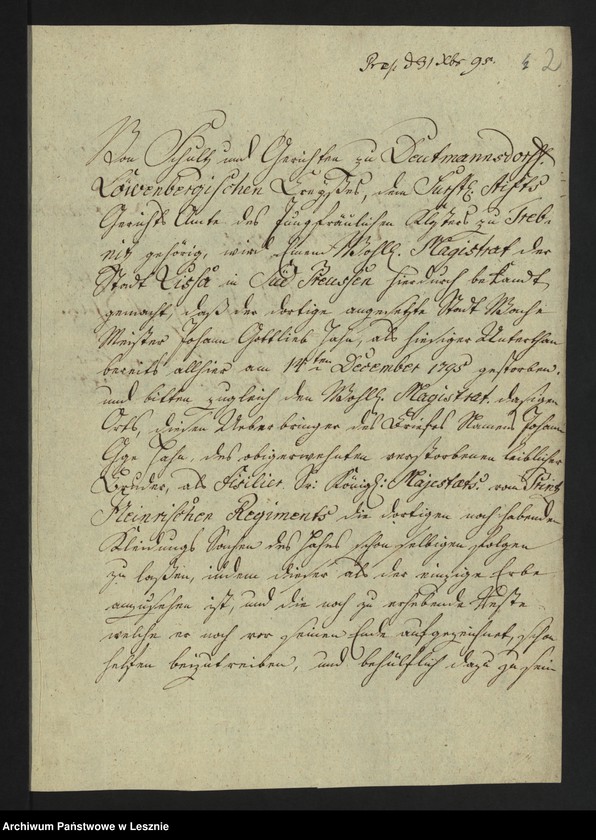 Præs. d 31 Xbr 95.
2
Von Schultz und Gerichten zu Deutmannsdorff,
Löwenbergischen Creyßes, dem Fürstl. Stifts
Gerichts Amte des Jungfräulichen Klosters zu Treb-
nitz gehörig, wird Einem Wohll. Magistrat der
Stadt Lissa in Süd Preussen hierdurch bekandt
gemacht, daß der dortige angesetzte Stadt Wache
Meister Johann Gottlieb Jahn, als hiesiger Unterthan
bereits allhier am 14ten December 1795 gestorben.
und bitten zugleich den Wohll. Magistrat dasigen
Orts, diesen Ueberbringer des Briefes Namens Johann
Jahn, des obigerwehnten verstorbenen leiblicher
Bruder, als Füsilier Sr: Königl: Majestaets: vom Printz
Heinrischen Regiments die dortigen noch habende
Kleidungs Sachen des Jahns schon selbigen folgen
zu laßen, indem dieser als der einzige Erbe
anzusehen ist, und die noch zu erhebende Reste
welche er noch vor seinen Ende aufgezeichnet,
helfen beyzutreiben, und behülflich dazu zu sein
Archiwum Państwowe w Lesznie